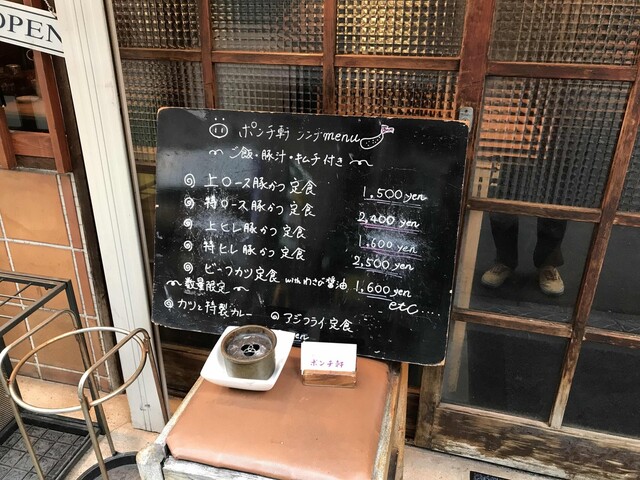 OPEN
ポンチ軒 ランチmenu
ご飯・豚汁・キムチ付き
上ロース豚かつ定食 1.500 yen
特ロース豚かつ定食 2,400 yen
上ヒレ豚かつ定食 1,600 yen
特ヒレ豚かつ定食 2,500 yen
ビーフカツ定食 withわさび醤油 1,600 yen
数量限定 etc....
カツと特製カレー アジフライ定食
yen
ポンチ軒